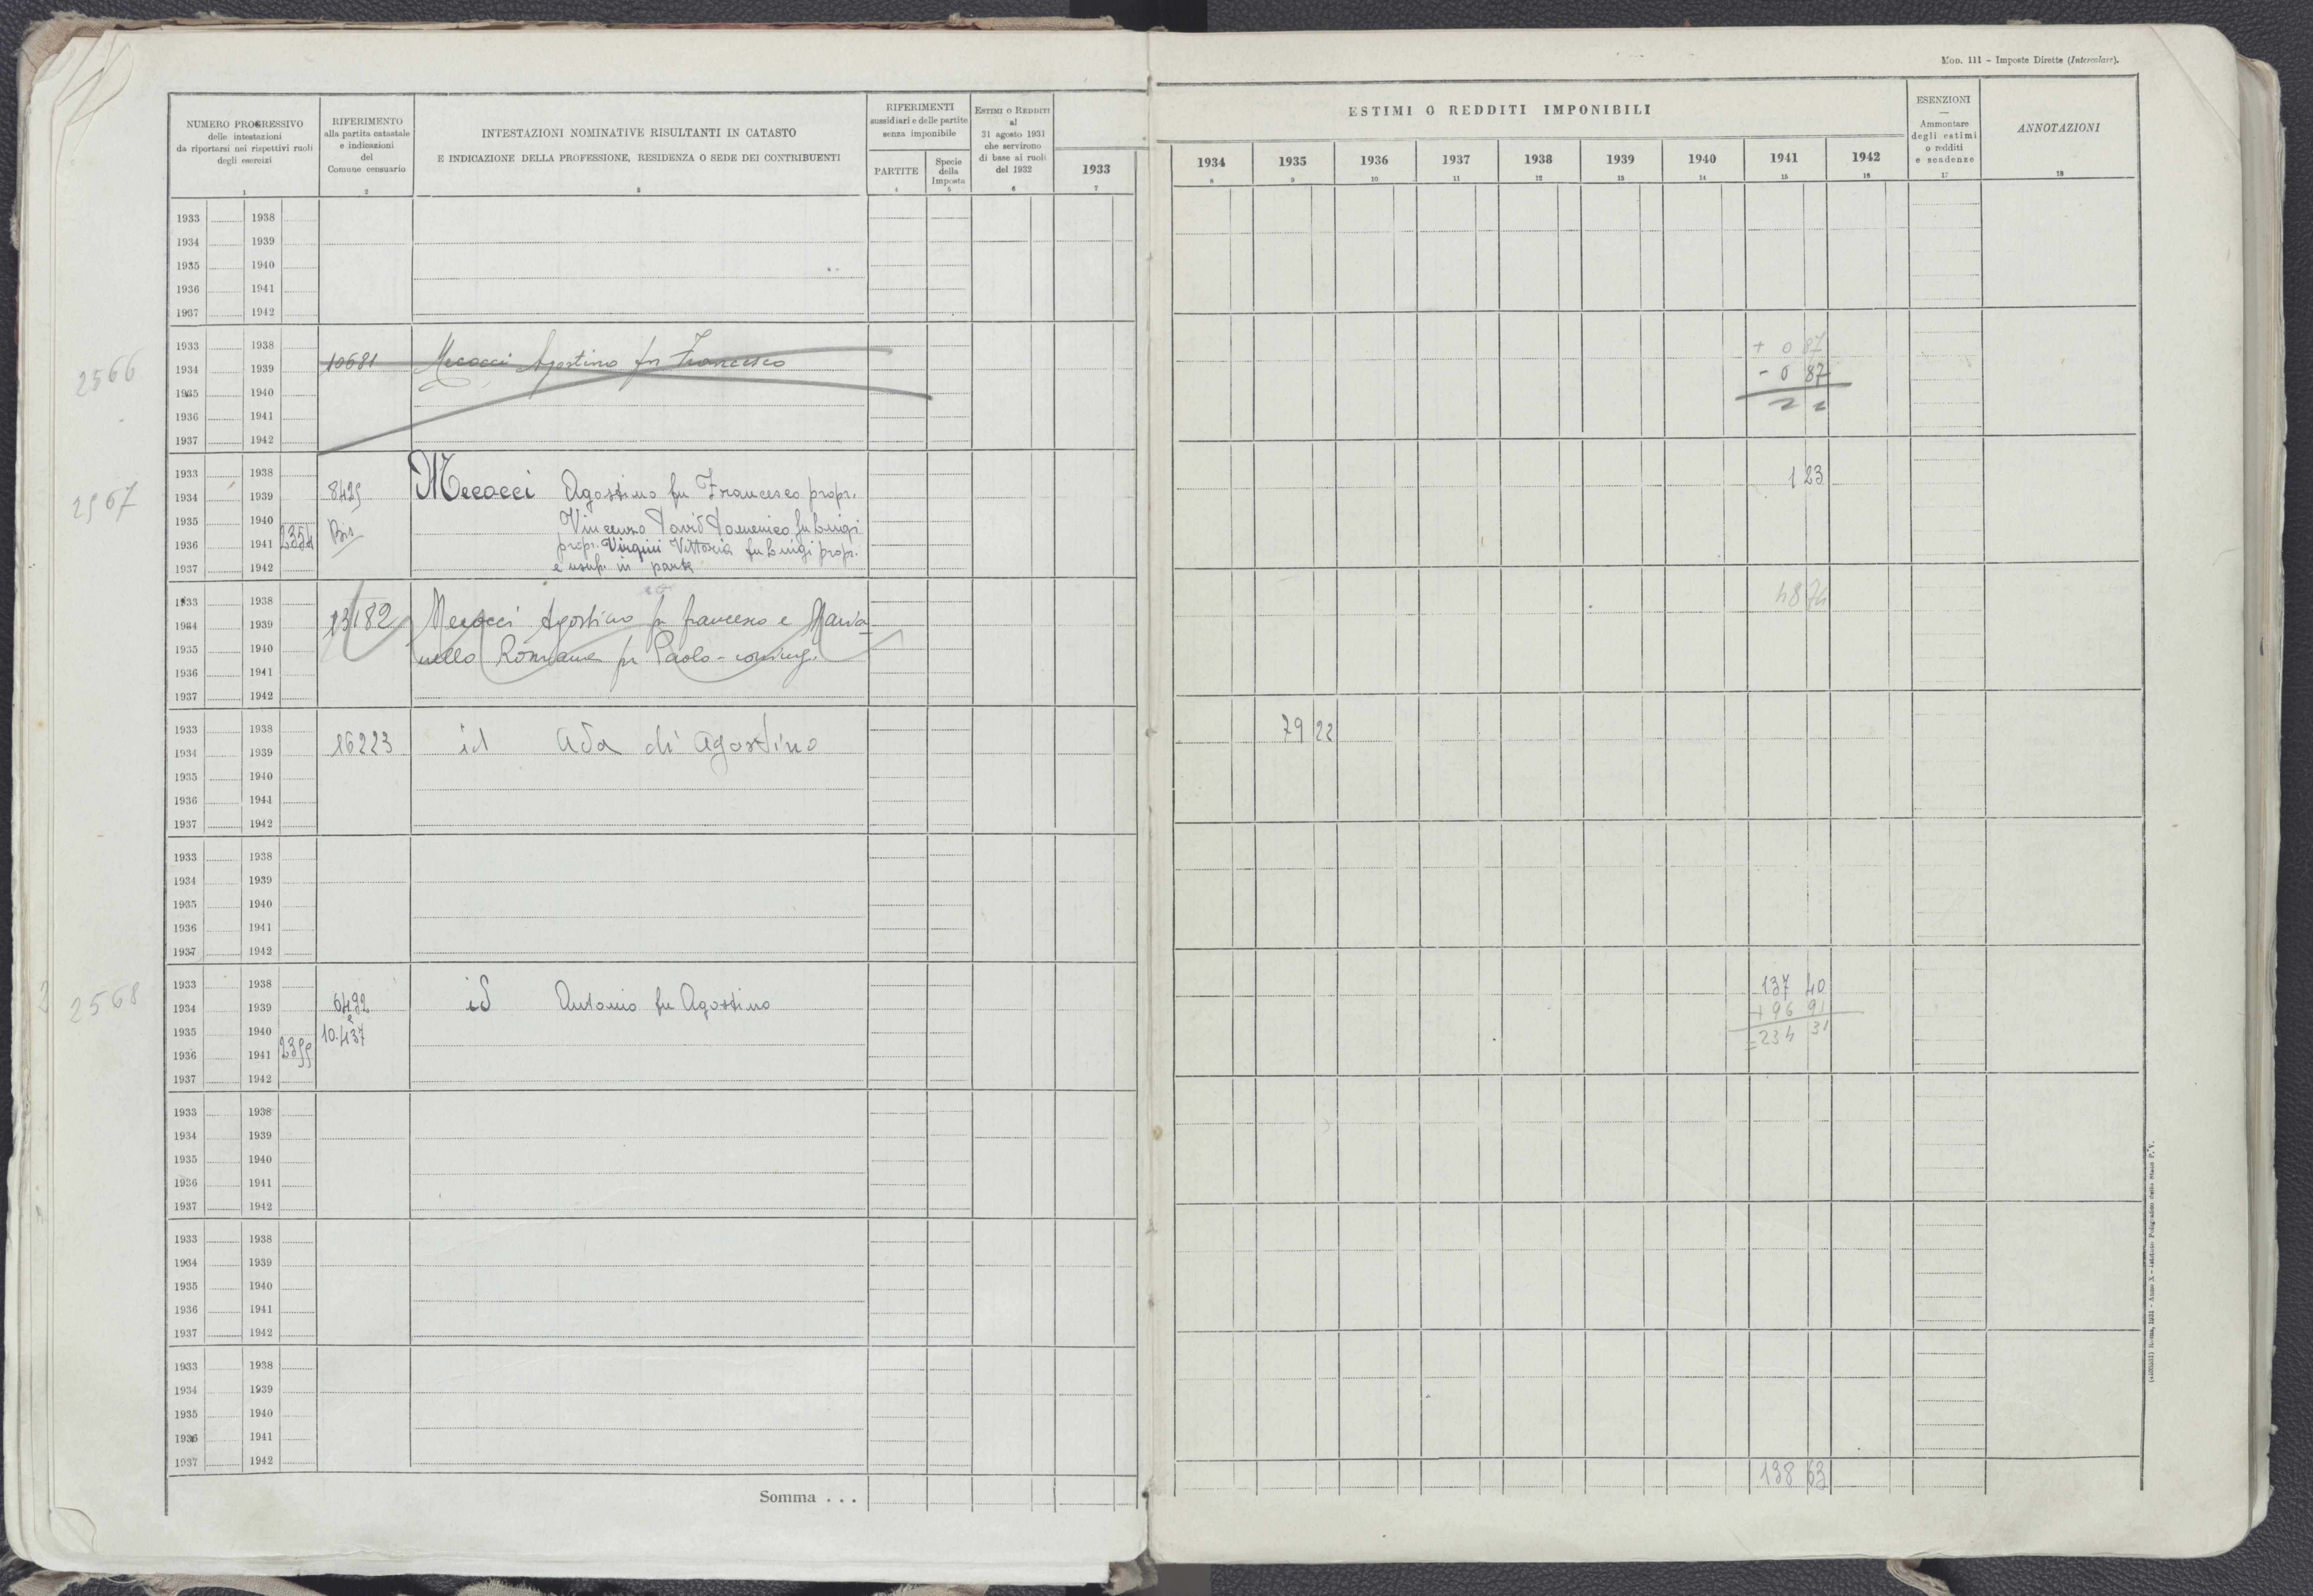 Mod. 111 - Imposte Dirette (Intercalare).
NUMERO PROGRESSIVO
delle intestazioni
da riportarsi nei rispettivi ruoli
degli esercizi
1
RIFERIMENTO
alla partita catastale
e indicazioni
del
Comune censuario
2
INTESTAZIONI NOMINATIVE RISULTANTI IN CATASTO
E INDICAZIONE DELLA PROFESSIONE, RESIDENZA O SEDE DEI CONTRIBUENTI
3
RIFERIMENTI
sussidiari e delle partite
senza imponibile
PARTITE
4
Specie
della
Imposta
5
Estimi o Redditi
al
31 agosto 1931
che servirono
di base ai ruoli
del 1932
6
1933
7
ESTIMI O REDDITI IMPONIBILI
1934 1935 1936 1937 1938 1939 1940 1941 1942
8 9 10 11 12 13 14 15 16
ESENZIONI
Ammontare
degli estimi
o redditi
e scadenze
17
ANNOTAZIONI
18
1933 1938
1934 1939
1935 1940
1936 1941
1937 1942
1933 1938 + 0 87
2566 1934 1939 10681 Mecocci Agostino fu Francesco - 0 87
1935 1940
1936 1941
1937 1942
1933 1938 1 23
2567 1934 1939 8425 Mecocci Agostino fu Francesco propr.
1935 1940 Bis Vincenzo David Domenico fu Luigi
1936 1941 2354 propr. Virgini Vittoria fu Luigi propr.
1937 1942 e usuf. in parte
1933 1938 48 74
1934 1939 13182 Mecocci Agostino fu francesco e Maria
1935 1940 nello Romana fu Paolo - coniug.
1936 1941
1937 1942
1933 1938 79 22
1934 1939 16223 id Ada di Agostino
1935 1940
1936 1941
1937 1942
1933 1938
1934 1939
1935 1940
1936 1941
1937 1942
1933 1938 137 40
2568 1934 1939 6492 id Antonio fu Agostino + 96 91
1935 1940 e 10.437 = 234 31
1936 1941 2355
1937 1942
1933 1938
1934 1939
1935 1940
1936 1941
1937 1942
1933 1938
1934 1939
1935 1940
1936 1941
1937 1942
1933 1938
1934 1939
1935 1940
1936 1941
1937 1942
Somma . . . 138 63